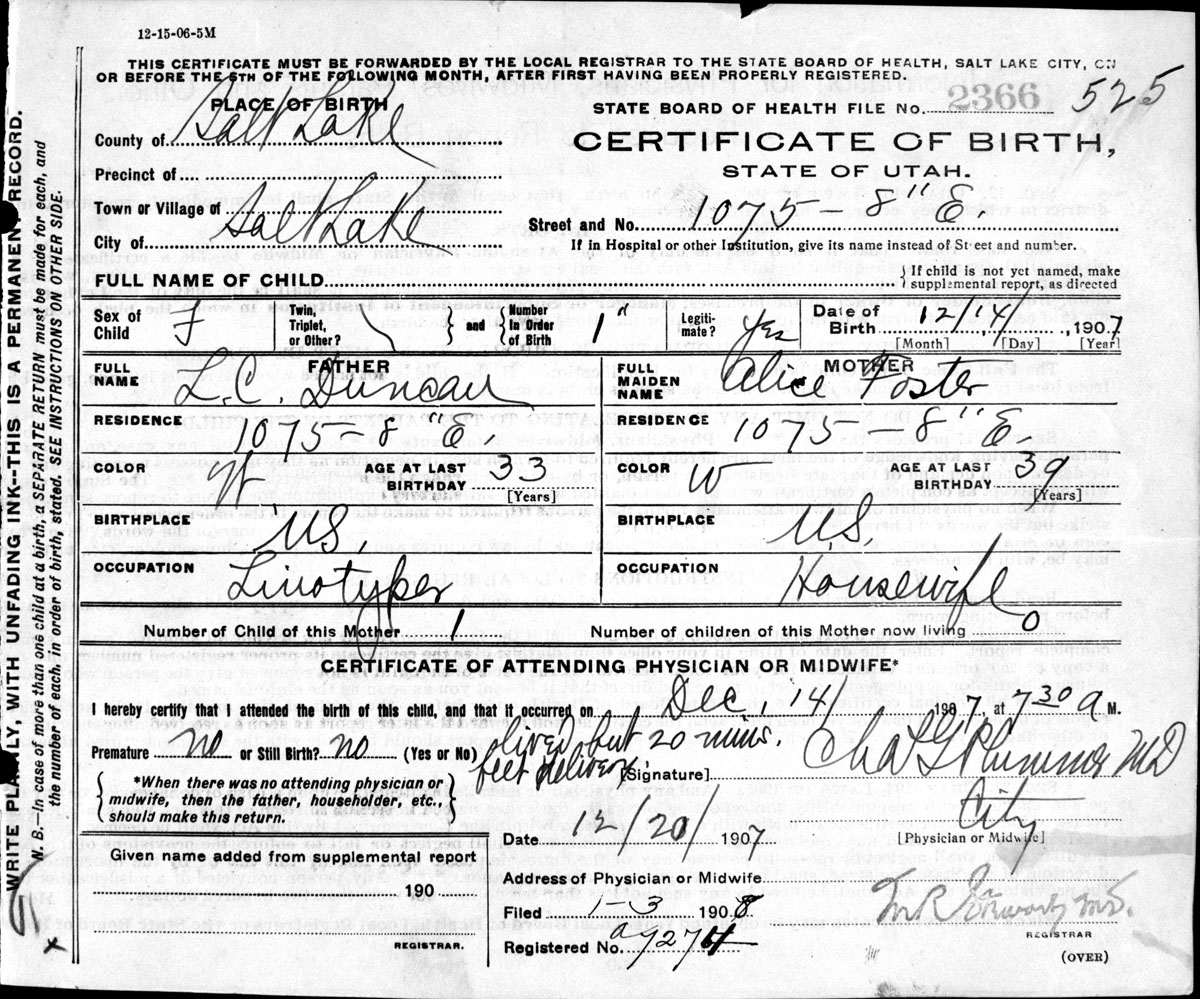 12-15-06-5M
THIS CERTIFICATE MUST BE FORWARDED BY THE LOCAL REGISTRAR TO THE STATE BOARD OF HEALTH, SALT LAKE CITY, ON
OR BEFORE THE 5TH OF THE FOLLOWING MONTH, AFTER FIRST HAVING BEEN PROPERLY REGISTERED.
PLACE OF BIRTH
STATE BOARD OF HEALTH FILE No. 2366 525
County of Salt Lake
CERTIFICATE OF BIRTH,
STATE OF UTAH.
Precinct of
Town or Village of
City of Salt Lake
Street and No. 1075 - 8" E
If in Hospital or other Institution, give its name instead of Street and number.
FULL NAME OF CHILD
If child is not yet named, make
supplemental report, as directed
Sex of Child F
Twin, Triplet, or Other? \ and Number In Order of Birth 1"
Legitimate? Yes
Date of Birth 12/14/, 1907
[Month] [Day] [Year]
FATHER
FULL NAME L.C. Duncan
RESIDENCE 1075-8"E.
COLOR W AGE AT LAST BIRTHDAY 33
[Years]
BIRTHPLACE US,
OCCUPATION Linotyper
MOTHER
FULL MAIDEN NAME Alice Foster
RESIDENCE 1075 8"E
COLOR W AGE AT LAST BIRTHDAY 39
[Years]
BIRTHPLACE U.S,
OCCUPATION Housewife
Number of Child of this Mother 1
Number of children of this Mother now living 0
CERTIFICATE OF ATTENDING PHYSICIAN OR MIDWIFE*
I hereby certify that I attended the birth of this child, and that it occurred on Dec, 14/ 1907, at 7 30 a M.
Premature no or Still Birth? no (Yes or No) lived but 20 mins.
feet delivery
*When there was no attending physician or
midwife, then the father, householder, etc.,
should make this return.
[Signature] Chas G Plummer MD
City
[Physician or Midwife]
Date 12/20/ 1907
Given name added from supplemental report
190
REGISTRAR.
Address of Physician or Midwife
Filed 1-3 1908
Registered No. a9274
REGISTRAR
(OVER)
WRITE PLAINLY, WITH UNFADING INK--THIS IS A PERMANENT RECORD.
N. B.--In case of more than one child at a birth, a SEPARATE RETURN must be made for each, and
the number of each, in order of birth, stated. SEE INSTRUCTIONS ON OTHER SIDE.